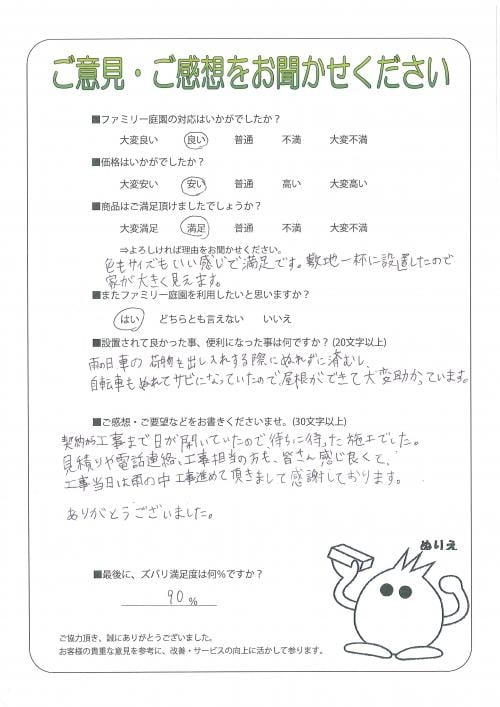 ご意見・ご感想をお聞かせください
■ファミリー庭園の対応はいかがでしたか?
大変良い 良い 普通 不満 大変不満
■価格はいかがでしたか?
大変安い 安い 普通 高い 大変高い
■商品はご満足頂けましたでしょうか?
大変満足 満足 普通 不満 大変不満
⇒よろしければ理由をお聞かせください。
色もサイズもいい感じで満足です。敷地一杯に設置したので
家が大きく見えます。
■またファミリー庭園を利用したいと思いますか?
はい どちらとも言えない いいえ
■設置されて良かった事、便利になった事は何ですか?(20文字以上)
雨の日車の荷物を出し入れする際にぬれずに済むし、
自転車もぬれてサビになっていたので屋根ができて大変助かっています。
■ご感想・ご要望などをお書きくださいませ。(30文字以上)
契約から工事まで日が開いていたので待ちに待った施工でした。
見積りや電話連絡、工事担当の方も、皆さん感じ良くて、
工事当日は雨の中工事進めて頂きまして感謝しております。
ありがとうございました。
ぬりえ
■最後に、ズバリ満足度は何%ですか?
90%
ご協力頂き、誠にありがとうございました。
お客様の貴重な意見を参考に、改善・サービスの向上に活かして参ります。